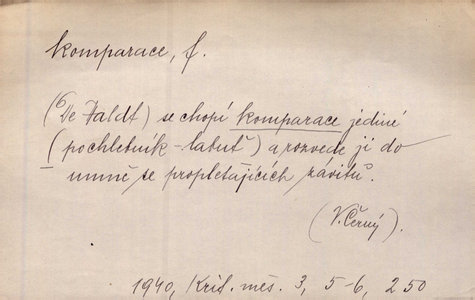 komparace, f.
(De Haldt) se chopí komparace jediné
(pochlebník – labuť) a rozvede ji do
umně se proplétajících závitů.
(V. Černý).
1940, Krit. měs. 3, 5-6, 250